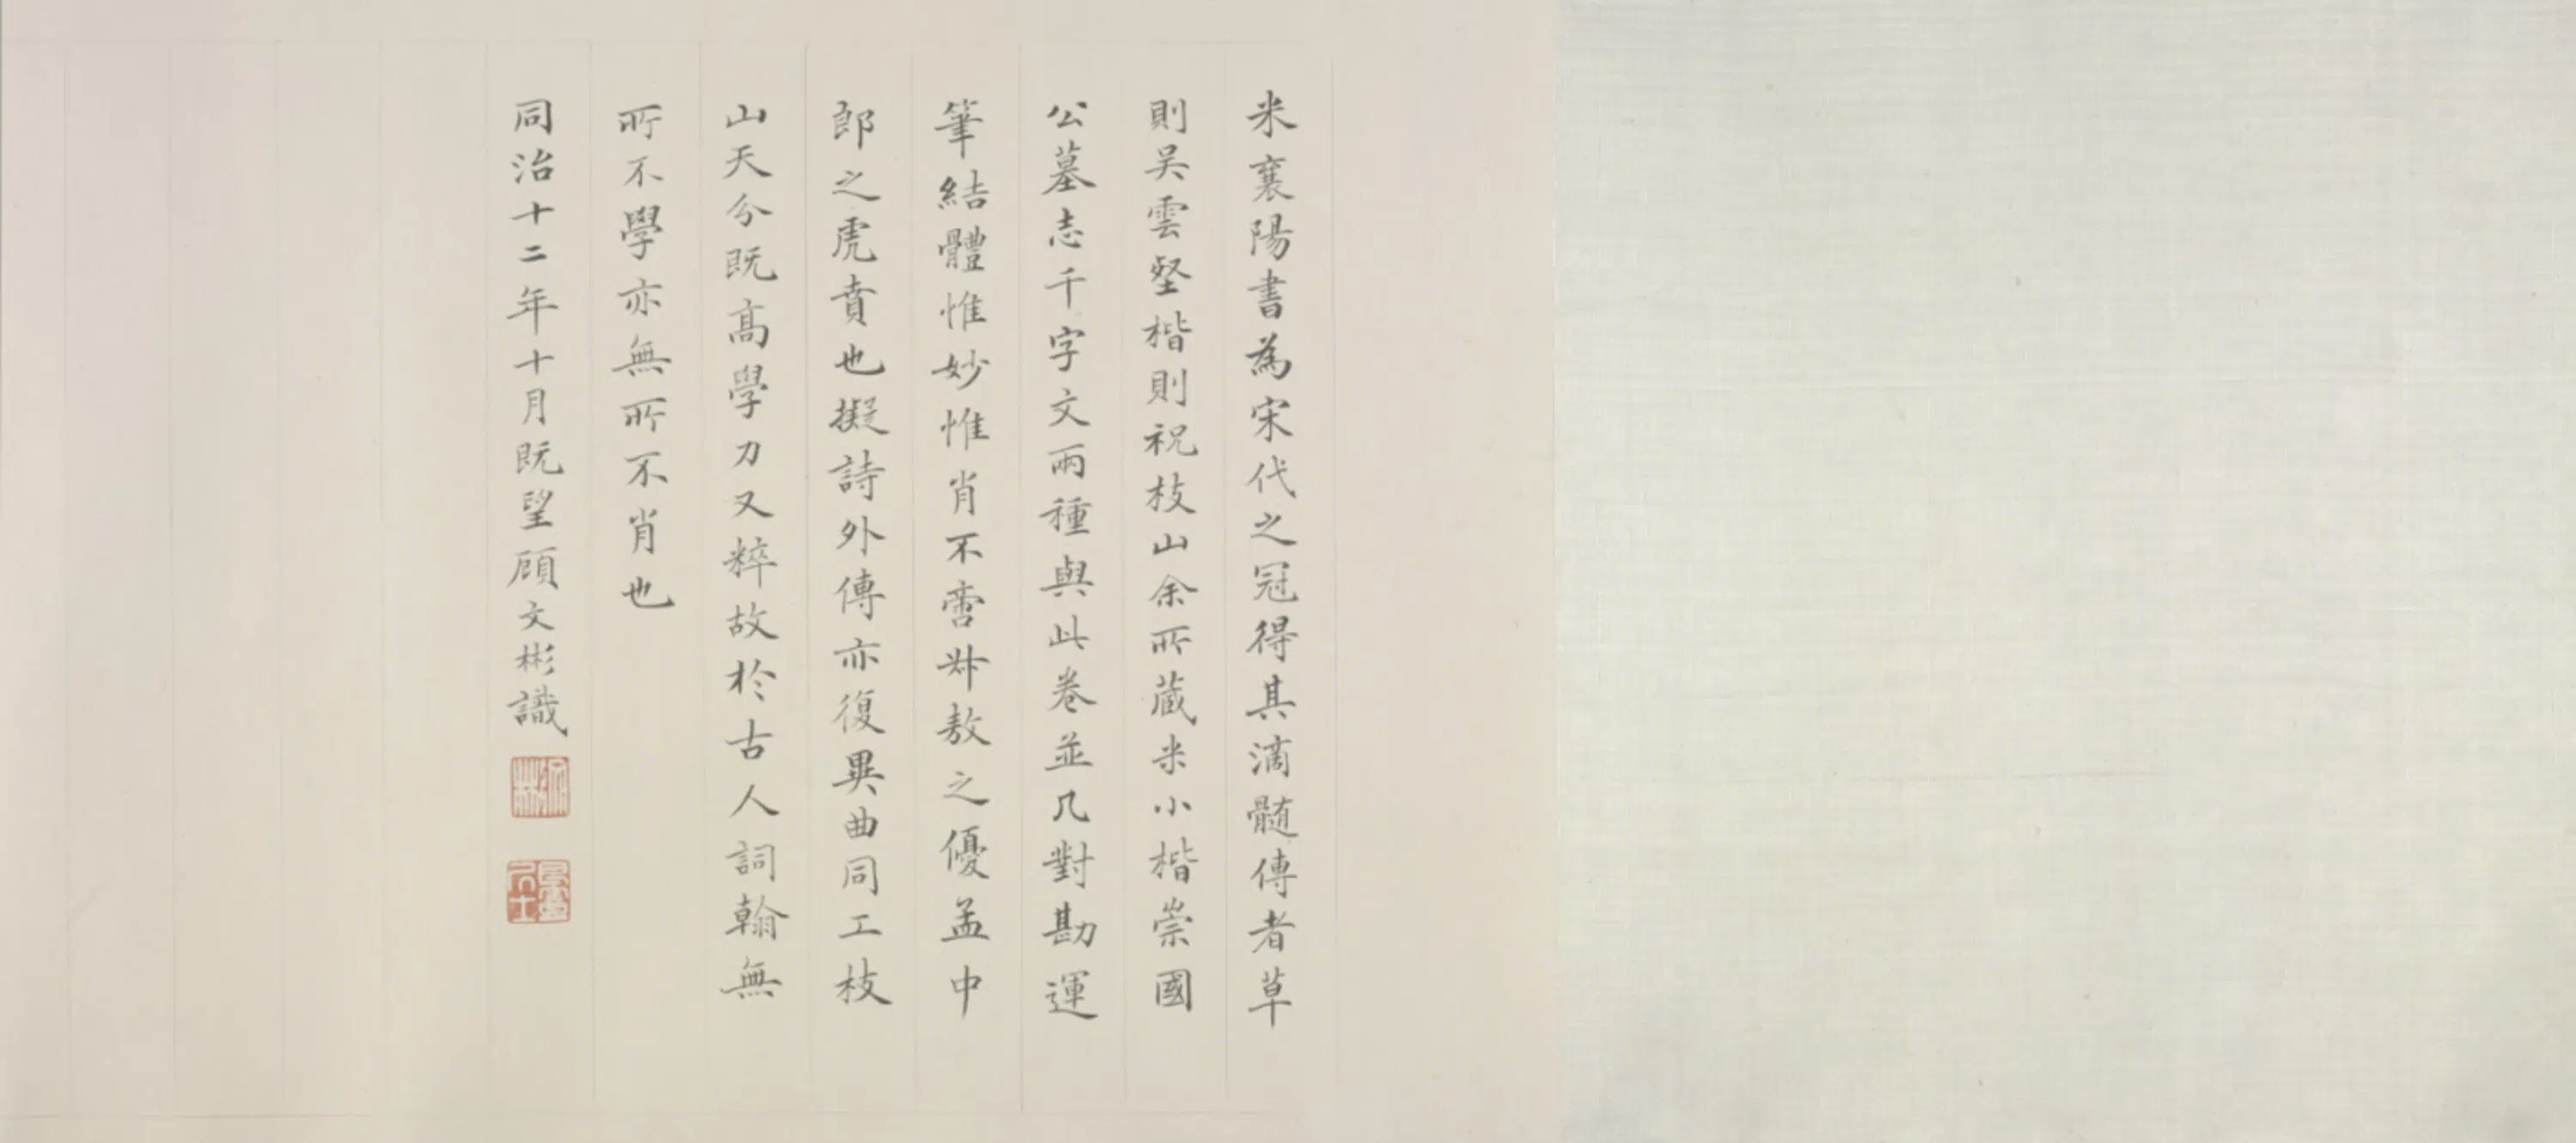 米襄陽書為宋代之冠得其滴髓傳者草
則吴雲壑楷則祝枝山余所蔵米小楷崇國
公墓志千字文兩種與此卷並几對勘運
筆結體惟妙惟肖不啻叔敖之優孟中
郎之虎賁也擬詩外傳亦復異曲同工枝
山天分既高學力又粹故於古人詞翰無
所不學亦無所不肖也
同治十二年十月既望顧文彬識